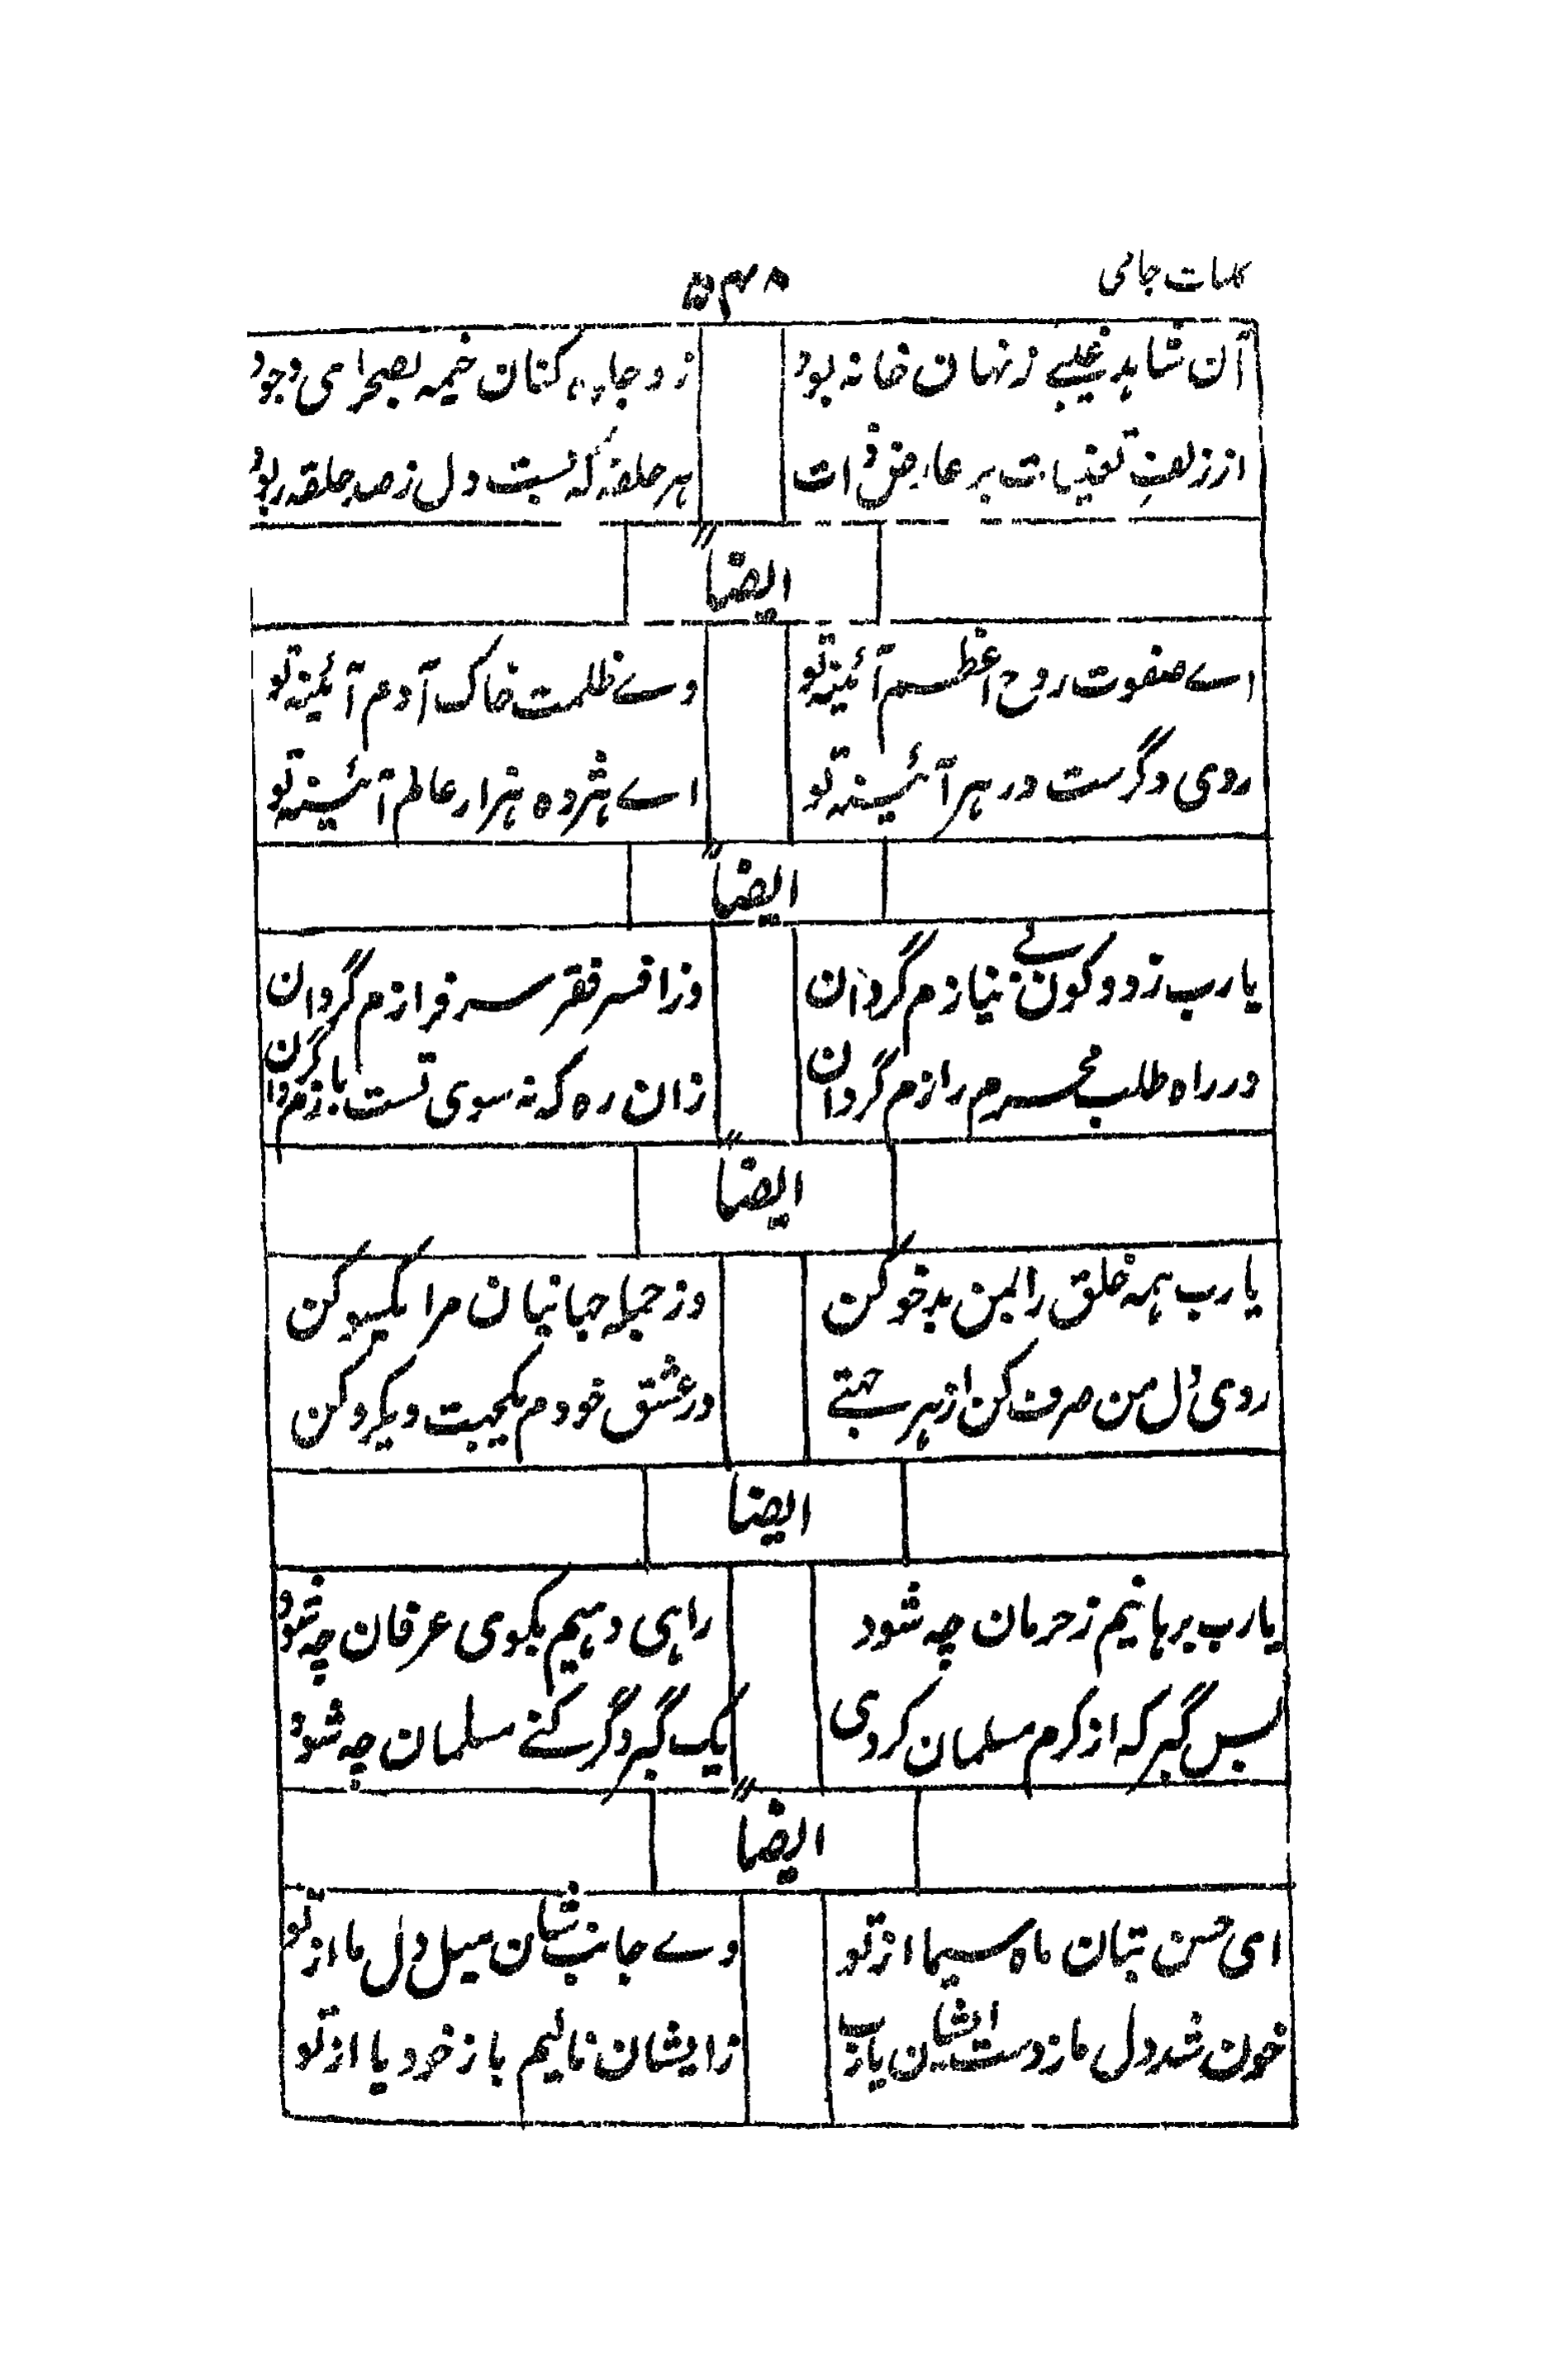 کلیات جامی ۵۳۸
آن شاهد غیبے ز نهان خانه بود زد جلوه کنان خیمه بصحرای وجود
از زلفِ تعینات بر عارض ذات هر حلقه که بست دل ز صد حلقه ربود
ایضاً
اے صفوت روح اعظم آئینهٔ تو وے ظلمت خاک آدم آئینهٔ تو
روی دگرست در هر آئینهٔ تو اے هژده هزار عالم آئینهٔ تو
ایضاً
یارب ز دو کون بے نیازم گردان وز افسر فقر سرفرازم گردان
در راه طلب محرم رازم گردان زان ره که نه سوی تست بازم گردان
ایضاً
یارب همه خلق را بمن بدخو کن وز جمله جهانیان مرا یکسو کن
روی دل من صرف کن از هر جهتے در عشق خودم یکجهت و یکرو کن
ایضا
یارب برهانیم ز حرمان چه شود راهی دهیم بکوی عرفان چه شود
بس گبر که از کرم مسلمان کردی یک گبر دگر کنے مسلمان چه شود
ایضاً
ای حسن بتان ماه سیما از تو وے جانب شان میل دل ما از تو
خون شد دل ما ز دست ایشان یارب ز ایشان نالیم باز خود یا از تو